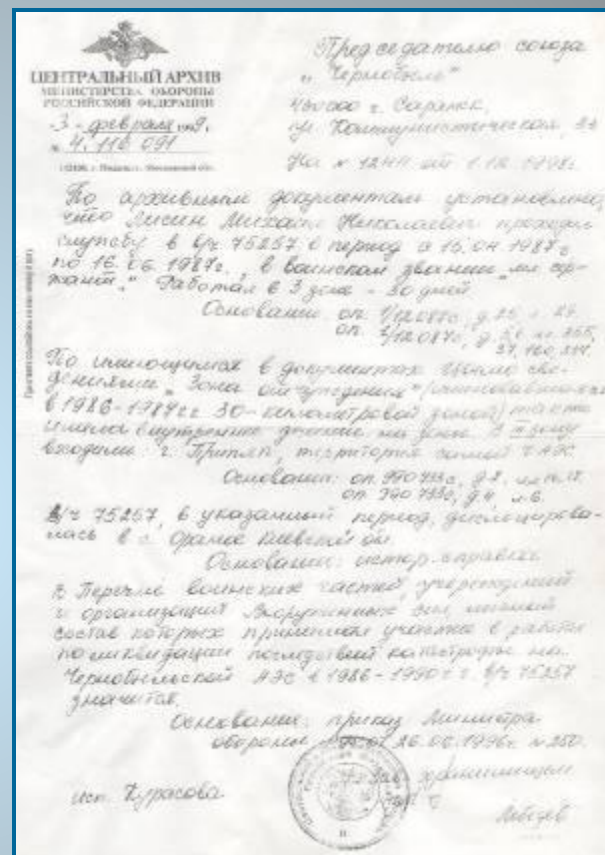 ЦЕНТРАЛЬНЫЙ АРХИВ
МИНИСТЕРСТВА ОБОРОНЫ
РОССИЙСКОЙ ФЕДЕРАЦИИ
"3" февраля 1999г.
№ 4.116 091
Председателю союза
"Чернобыль"
г. Саранск,
ул. Коммунистическая, 33
На № 1244 от 1.12.1998г.
По архивным документам установлено,
что Лисин Михаил Николаевич проходил
службу в в/ч 75257 в период с 15.04.1987г.
по 16.06.1987г., в воинском звании "мл. сер-
жант." Работал в 3 зоне - 30 дней.
Основание: оп. д. 25, л. 29.
оп.
По имеющимся в документах ЦАМО све-
дениям "Зона отчуждения"
в 1986-1987гг. 30-километровой зоной)
имела внутреннее деление на зоны. В III зону
входили: г. Припять, территория самой ЧАЭС.
Основание: оп. 990793с, д. 2,
оп. д. 4, л. 6.
В/ч 75257, в указанный период, дислоцирова-
лась в с. Ораное Киевской об.
Основание: истор. справка
В Перечне воинских частей, учреждений
и организаций Вооруженных сил, личный
состав которых принимал участие в работах
по ликвидации последствий катастрофы на
Чернобыльской АЭС в 1986-1990гг. в/ч 75257
значится.
Основание: приказ Министра
обороны от 26.06.1996г. № 250.
хранилищем
исп. Курасова
Лебедев